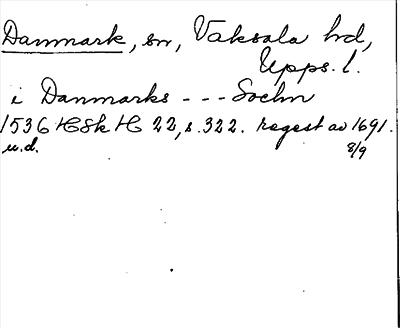 Danmark, sn, Vaksala hrd,
Upps. l.
i Danmarks --- Sochn
1536 HSk H 22, s. 322. regest av 1691.
u.d. 8/9